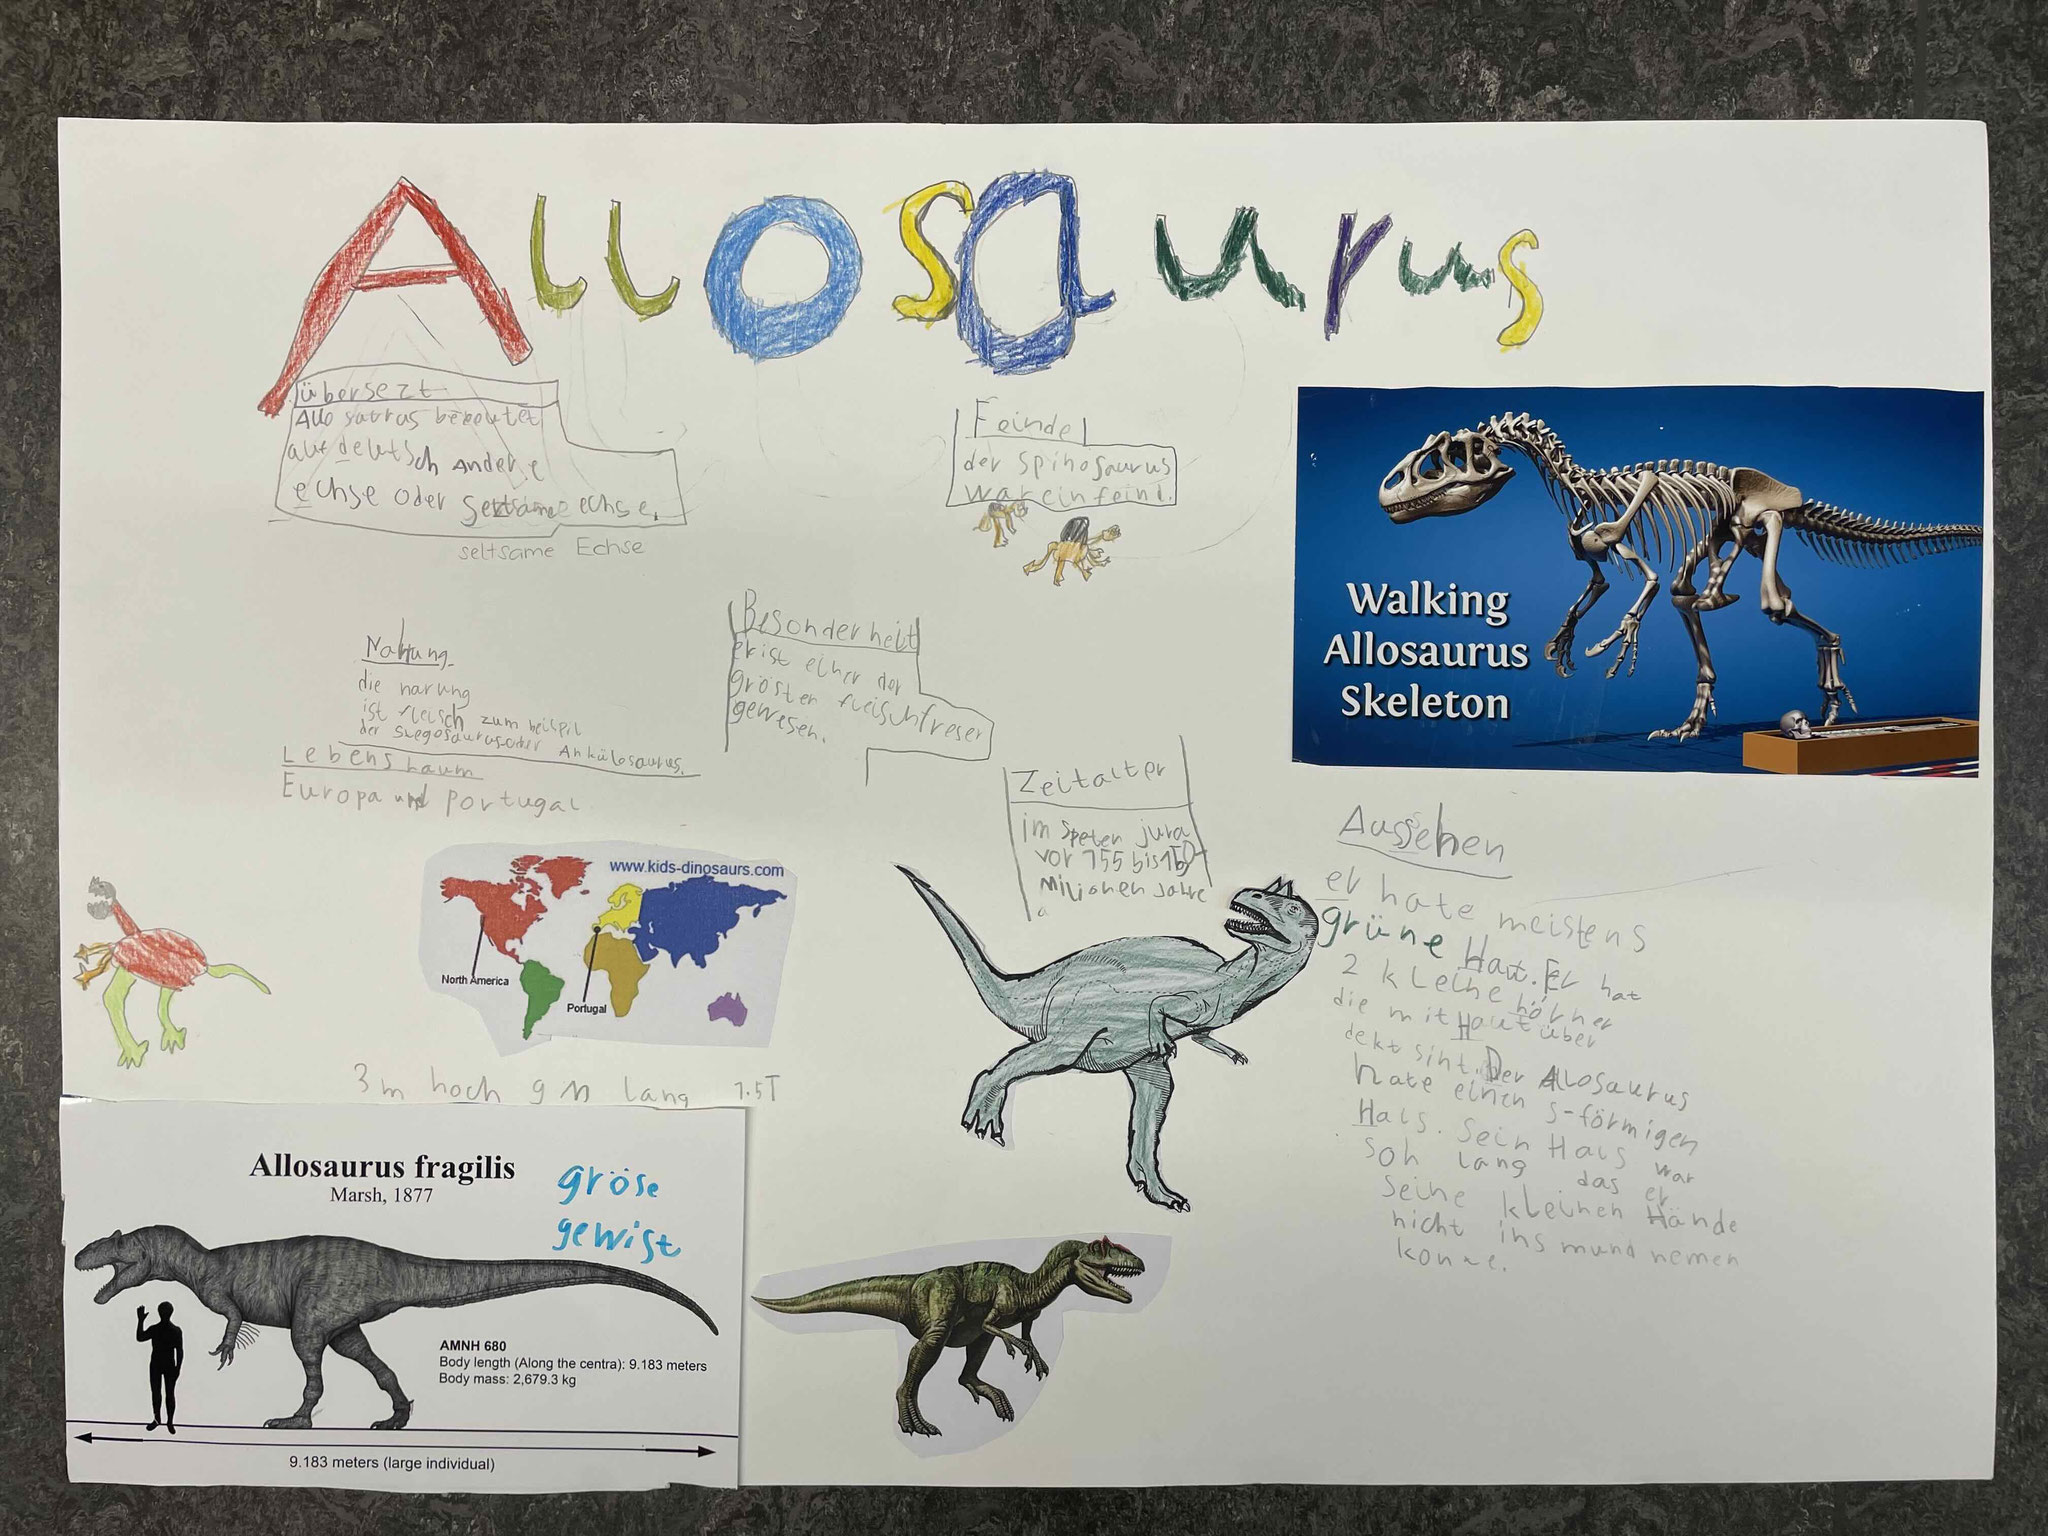 Allosaurus
übersezt
Allosaurus bedeutet
auf deutsch Andere
echse oder seltsame echse.
seltsame Echse
Feinde
der Spinosaurus
war ein feind.
Walking
Allosaurus
Skeleton
Nahrung
die narung
ist fleisch zum beispil
der Stegosaurus oder Ankülosaurus.
Lebensraum
Europa und Portugal.
Besonderheit
er ist einer der
grösten fleischfreser
gewesen.
Zeitalter
im speten jura
vor 155 bis 150
Milionen Jahre
www.kids-dinosaurs.com
North America
Portugal
Aussehen
er hate meistens
grüne Haut. Er hat
2 kleine hörner
die mit Haut über
dekt sint. Der Allosaurus
hate einen s-förmigen
Hals. Sein Hals war
soh lang das er
seine kleinen Hände
nicht ins mund nemen
konte.
3m hoch 9m lang 1.5T
Allosaurus fragilis
Marsh, 1877
gröse
gewist
AMNH 680
Body length (Along the centra): 9.183 meters
Body mass: 2,679.3 kg
9.183 meters (large individual)